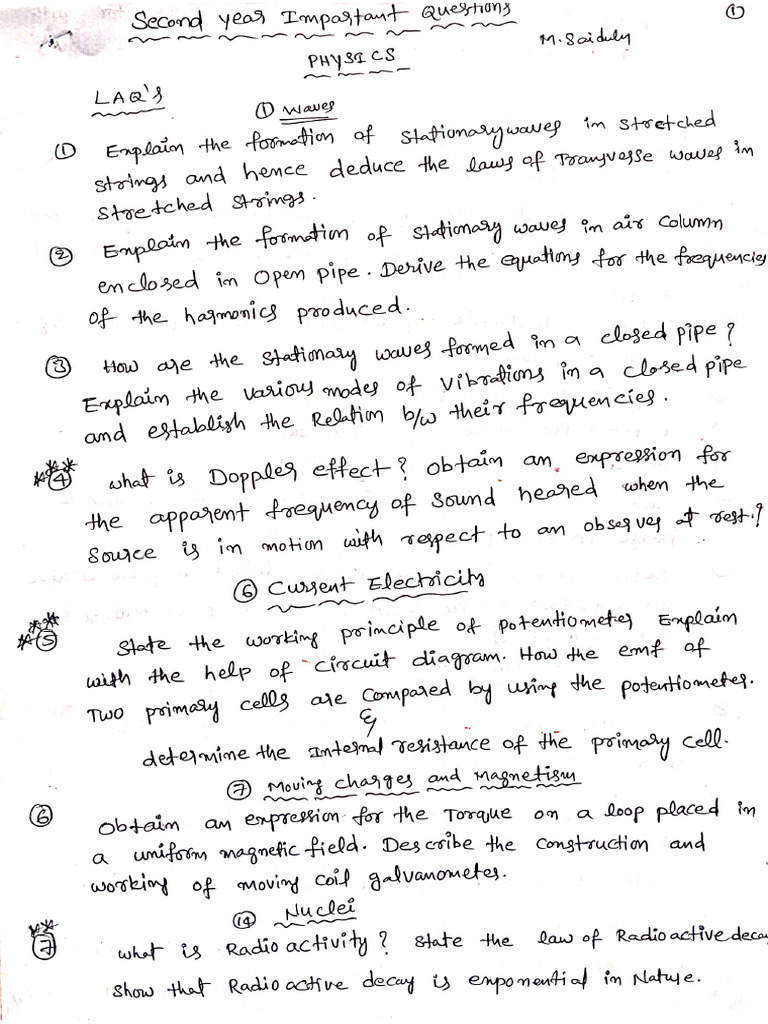 Second year Important Questions
①
PHYSICS
M. Saidulu
LAQ's
① Waves
① Explain the formation of stationary waves in stretched
strings and hence deduce the laws of Transverse waves in
stretched strings.
② Explain the formation of stationary waves in air column
enclosed in open pipe. Derive the equations for the frequencies
of the harmonics produced.
③ How are the stationary waves formed in a closed pipe?
Explain the various modes of Vibrations in a closed pipe
and establish the Relation b/w their frequencies.
④ what is Doppler effect? Obtain an expression for
the apparent frequency of sound heared when the
Source is in motion with respect to an observer at rest.?
⑥ Current Electricity
⑤ State the working principle of potentiometer Explain
with the help of circuit diagram. How the emf of
Two primary cells are compared by using the potentiometer.
&
determine the Internal resistance of the primary cell.
⑦ Moving charges and Magnetism
⑥ Obtain an expression for the Torque on a loop placed in
a uniform magnetic field. Describe the construction and
working of moving coil galvanometer.
⑭ Nuclei
⑦ what is Radio activity? State the law of Radioactive decay
show that Radioactive decay is exponential in Nature.